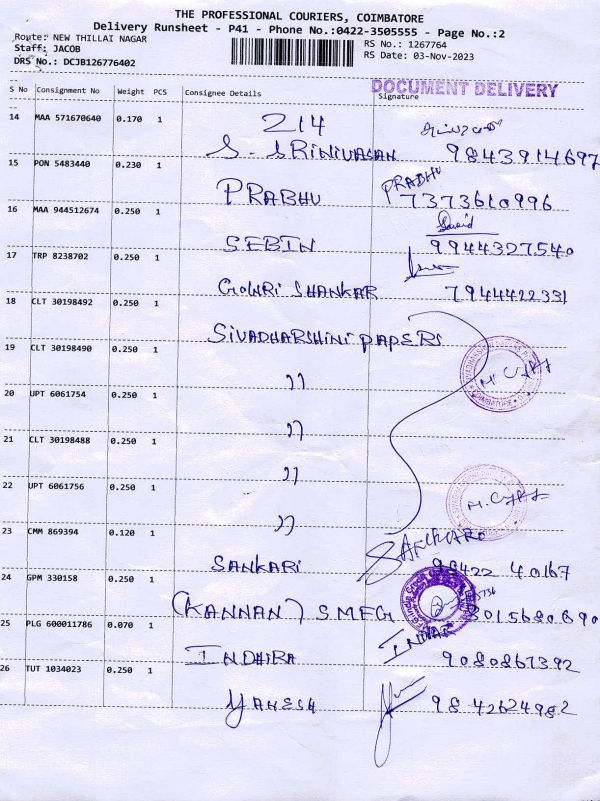 THE PROFESSIONAL COURIERS, COIMBATORE
Delivery Runsheet - P41 - Phone No.:0422-3505555 - Page No.:2
Route: NEW THILLAI NAGAR
RS No.: 1267764
Staff: JACOB
RS Date: 03-Nov-2023
DRS No.: DCJB126776402
DOCUMENT DELIVERY
S No Consignment No Weight PCS Consignee Details Signature
14 MAA 571670640 0.170 1 214
S. SRINIVASAN 9843914697
15 PON 5483440 0.230 1
PRABHU PRABHU 7373610996
16 MAA 944512674 0.250 1
SEBIN 9944327540
17 TRP 8238702 0.250 1
GOWRI SHANKAR 7944422331
18 CLT 30198492 0.250 1
SIVADHARSHINI PAPERS
19 CLT 30198490 0.250 1
”
20 UPT 6061754 0.250 1
”
21 CLT 30198488 0.250 1
”
22 UPT 6061756 0.250 1
”
23 CMM 869394 0.120 1
SANKARI 98422 40167
24 GPM 330158 0.250 1
(KANNAN) SMFG 8015680690
25 PLG 600011786 0.070 1
INDHIRA 9080867392
26 TUT 1034023 0.250 1
MAHESH 9842624982